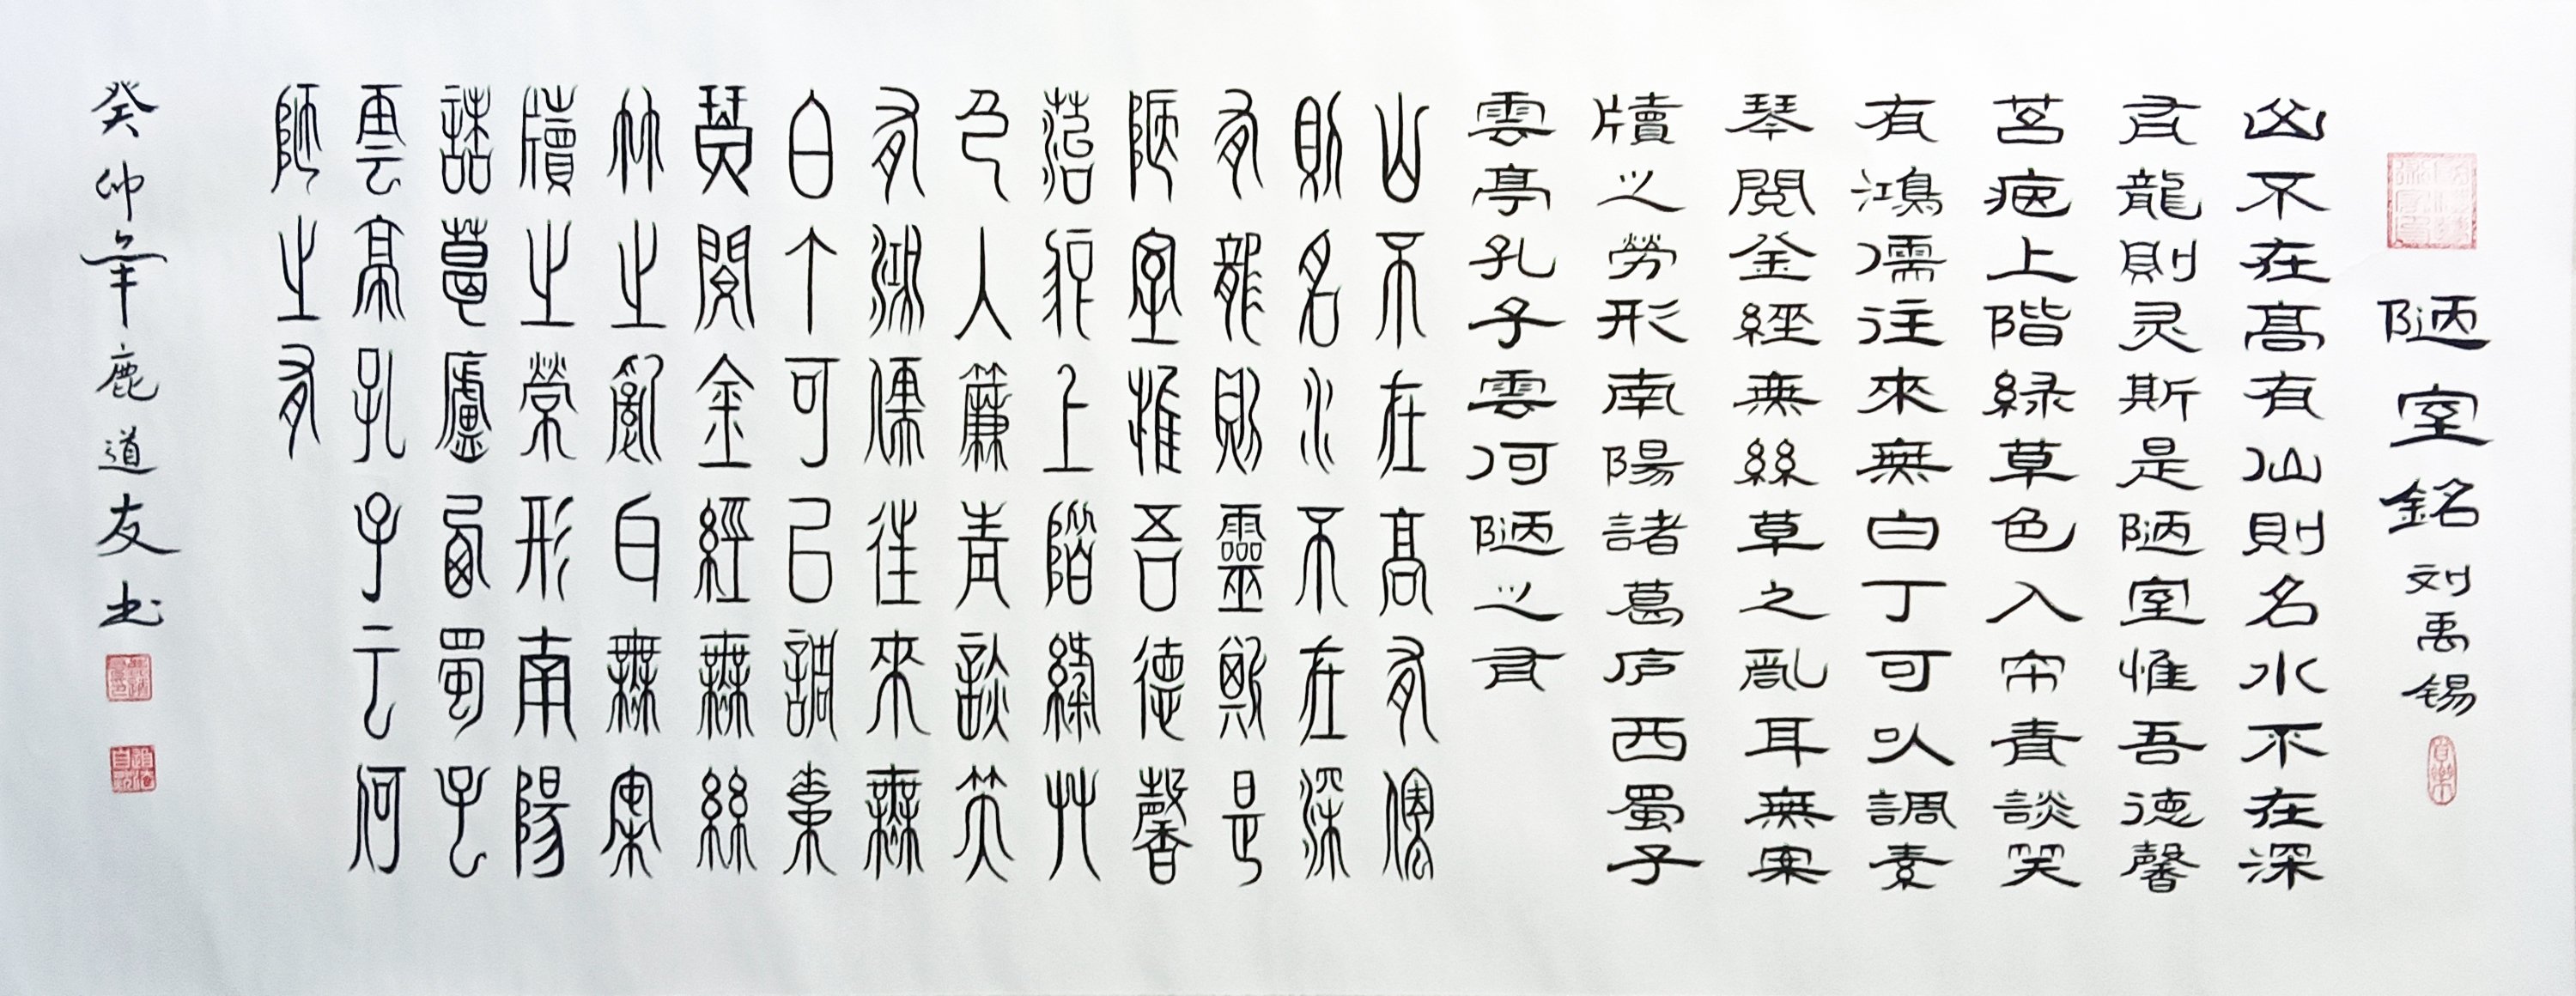 陋室銘 刘禹锡
山不在髙有仙則名水不在深
有龍則灵斯是陋室惟吾徳馨
苔痕上階緑草色入帘青談笑
有鴻儒往來無白丁可以調素
琴閲金經無絲草之亂耳無案
牘之勞形南陽諸葛庐西蜀子
雲亭孔子雲何陋之有
山不在高有僊
則名水不在深
有龍則靈斯是
陋室惟吾德馨
苔痕上階綠艸
色入簾青談笑
有鴻儒往來無
白丁可以調素
琴閱金經無絲
竹之亂耳無案
牘之勞形南陽
諸葛廬西蜀子
雲亭孔子云何
陋之有
癸卯年鹿道友书